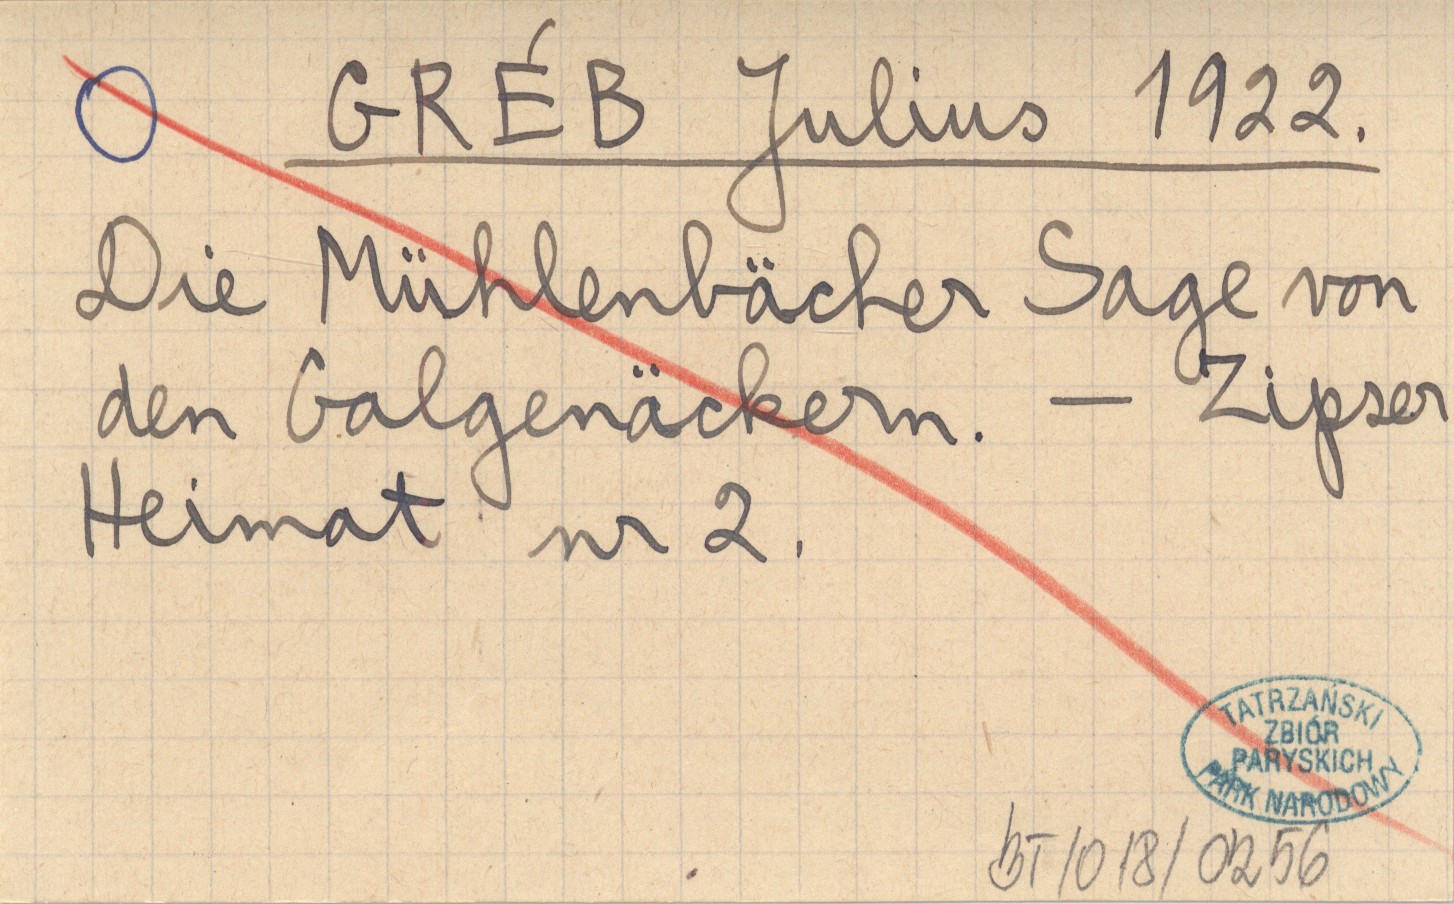 GRÉB Julius 1922.
Die Mühlenbächer Sage von
den Galgenäckern. — Zipser
Heimat nr 2.
TATRZAŃSKI
ZBIÓR
PARYSKICH
PARK NARODOWY
BT/018/0256